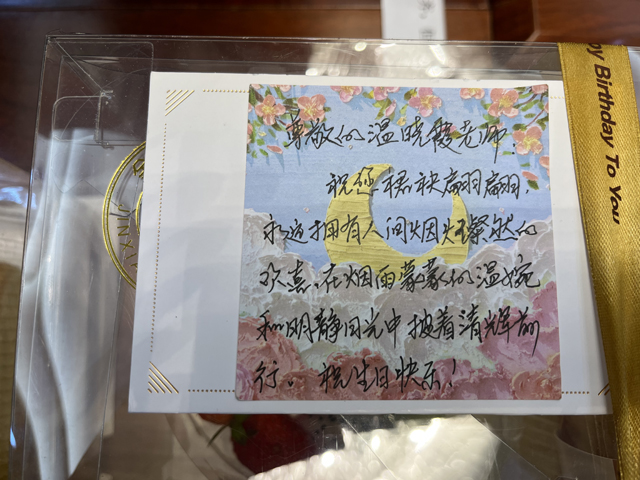 尊敬的温晓霞老师:
祝您裙袂翩翩,
永远拥有人间烟火璨然的
欢喜,在烟雨蒙蒙的温婉
和明静月光中披着清辉前
行。祝生日快乐!
py Birthday To You